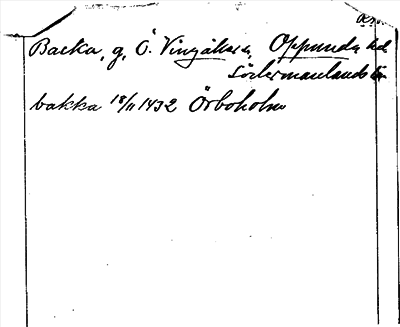 Backa, g, Ö. Vingåkers sn, Oppunda hd
Södermanlands län
bakka 18/11 1432 Örboholm